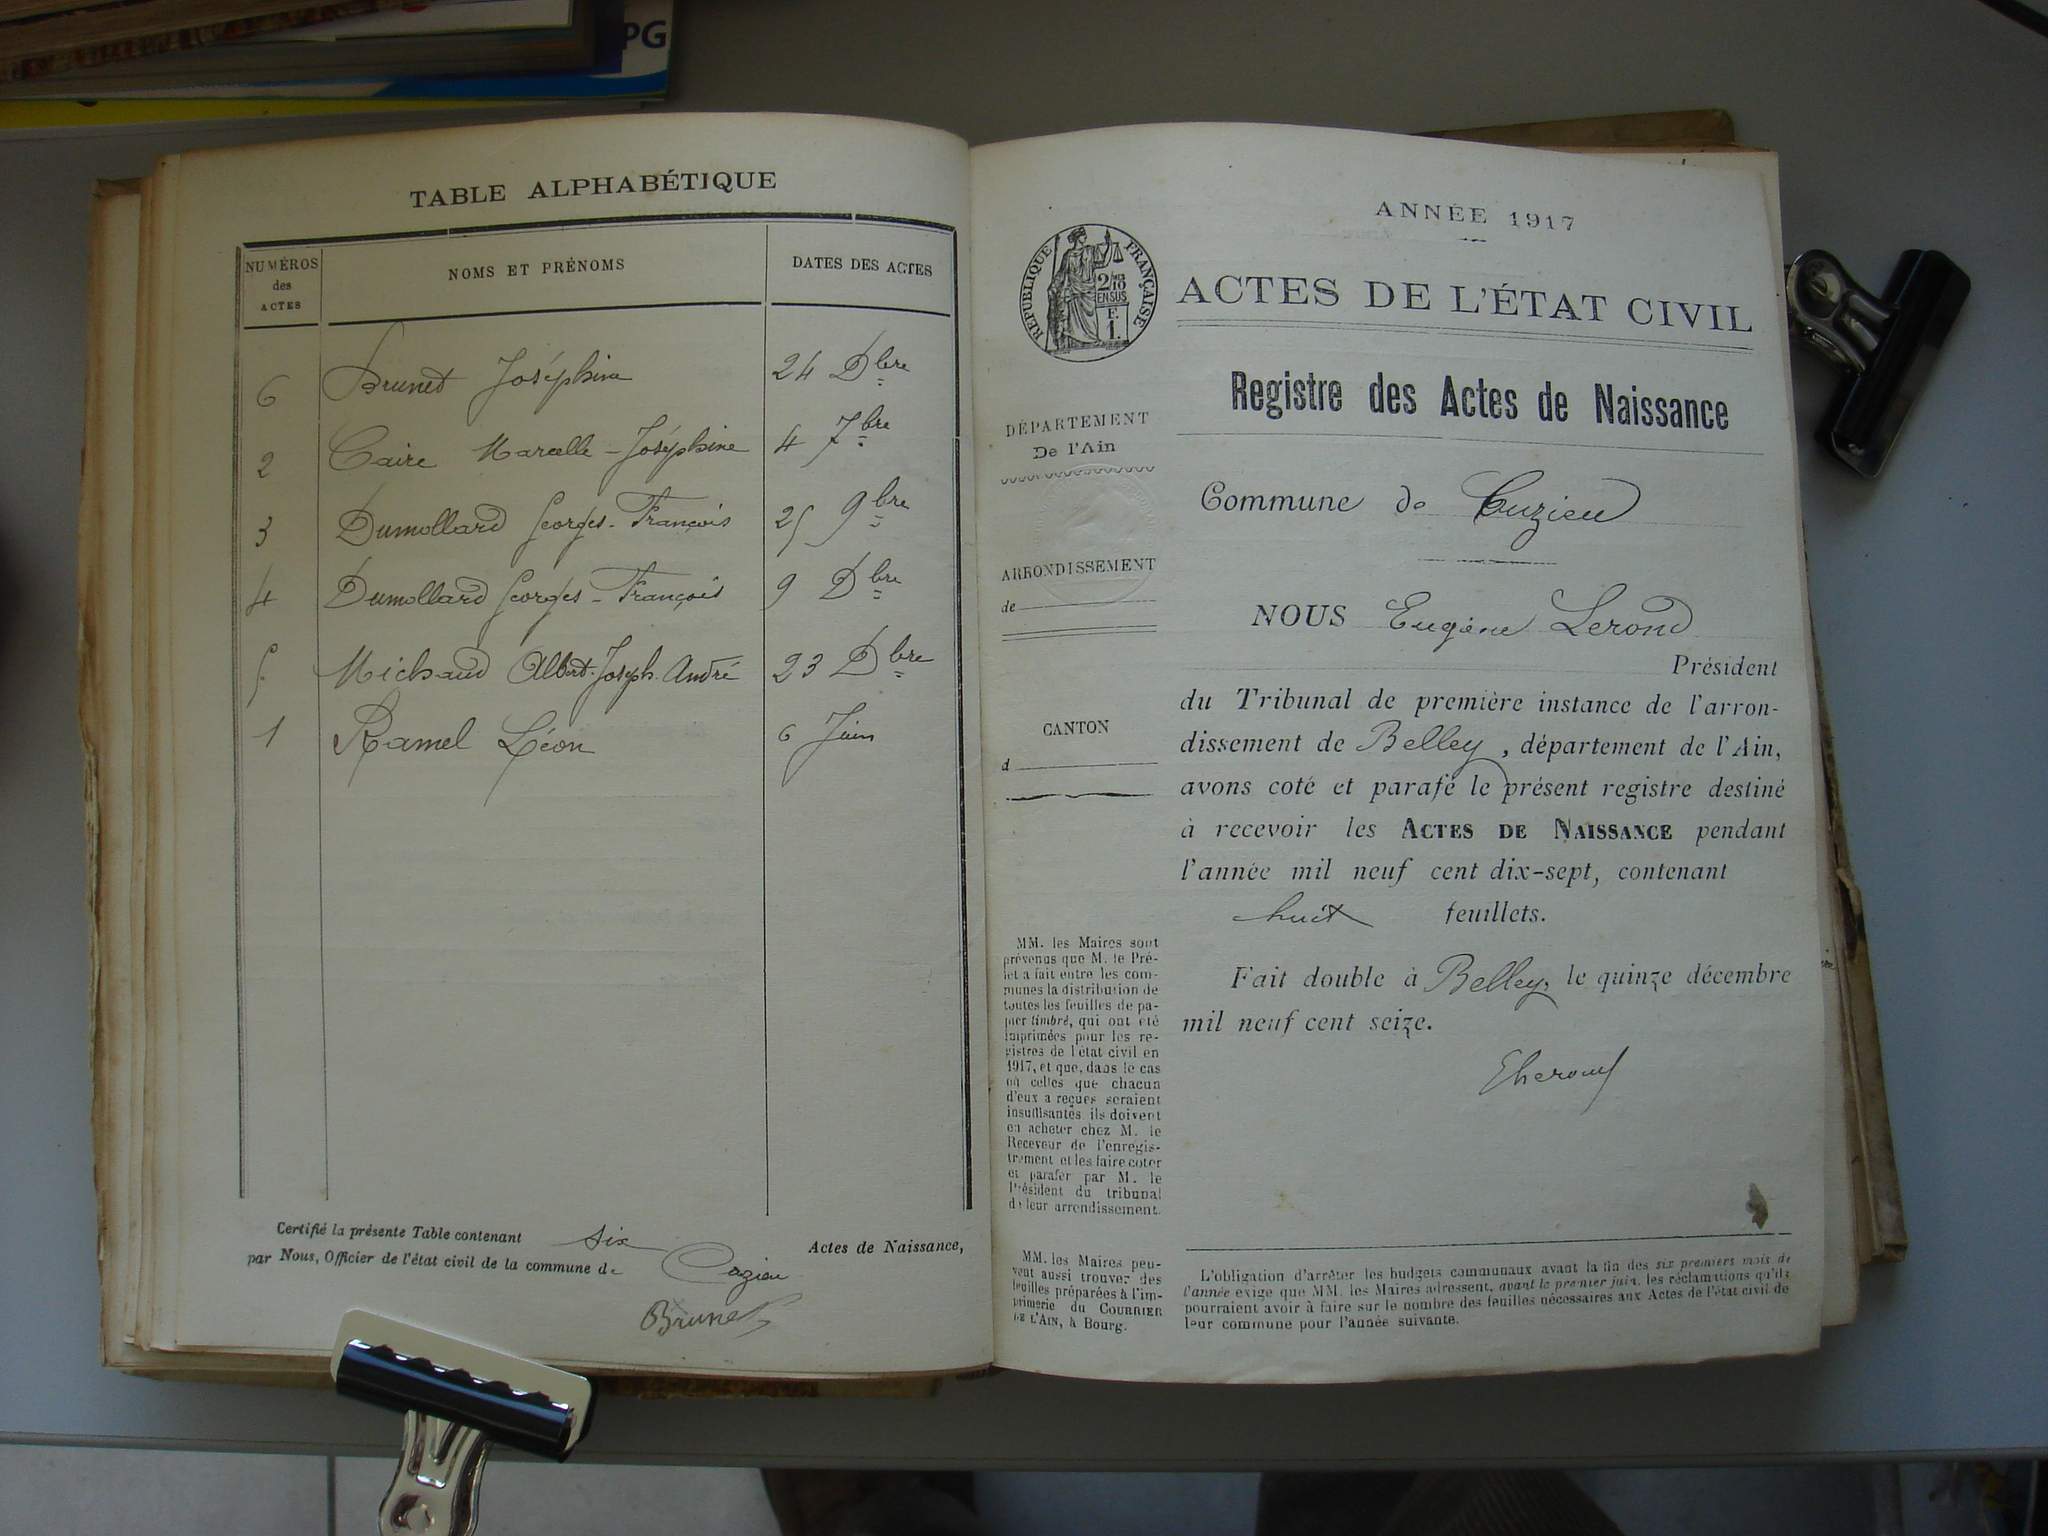 PG
TABLE ALPHABÉTIQUE
NUMÉROS
des
ACTES
NOMS ET PRÉNOMS
DATES DES ACTES
6 Brunet Joséphine 24 Dbre
2 Caire Marcelle-Joséphine 4 7bre
3 Dumollard Georges-François 25 9bre
4 Dumollard Georges-François 9 Dbre
5 Michaud Albert-Joseph-André 23 Dbre
1 Ramel Léon 6 Juin
Certifié la présente Table contenant six Actes de Naissance,
par Nous, Officier de l'état civil de la commune de Cuzieu
Brunet
ANNÉE 1917
RÉPUBLIQUE FRANÇAISE
2/10
EN SUS
F.
1.
ACTES DE L'ÉTAT CIVIL
Registre des Actes de Naissance
DÉPARTEMENT
De l'Ain
ARRONDISSEMENT
de
CANTON
d
Commune de Cuzieu
NOUS Eugène Lerond
Président
du Tribunal de première instance de l'arron-
dissement de Belley, département de l'Ain,
avons coté et parafé le présent registre destiné
à recevoir les ACTES DE NAISSANCE pendant
l'année mil neuf cent dix-sept, contenant
huit feuillets.
Fait double à Belley, le quinze décembre
mil neuf cent seize.
MM. les Maires sont
prévenus que M. le Pré-
fet a fait entre les com-
munes la distribution de
toutes les feuilles de pa-
pier timbré, qui ont été
imprimées pour les re-
gistres de l'état civil en
1917, et que, dans le cas
où celles que chacun
d'eux a reçues seraient
insuffisantes ils doivent
en acheter chez M. le
Receveur de l'enregis-
trement et les faire coter
et parafer par M. le
Président du tribunal
de leur arrondissement.
MM. les Maires peu-
vent aussi trouver des
feuilles préparées à l'im-
primerie du COURRIER
DE L'AIN, à Bourg.
L'obligation d'arrêter les budgets communaux avant la fin des six premiers mois de
l'année exige que MM. les Maires adressent, avant le premier juin, les réclamations qu'ils
pourraient avoir à faire sur le nombre des feuilles nécessaires aux Actes de l'état civil de
leur commune pour l'année suivante.